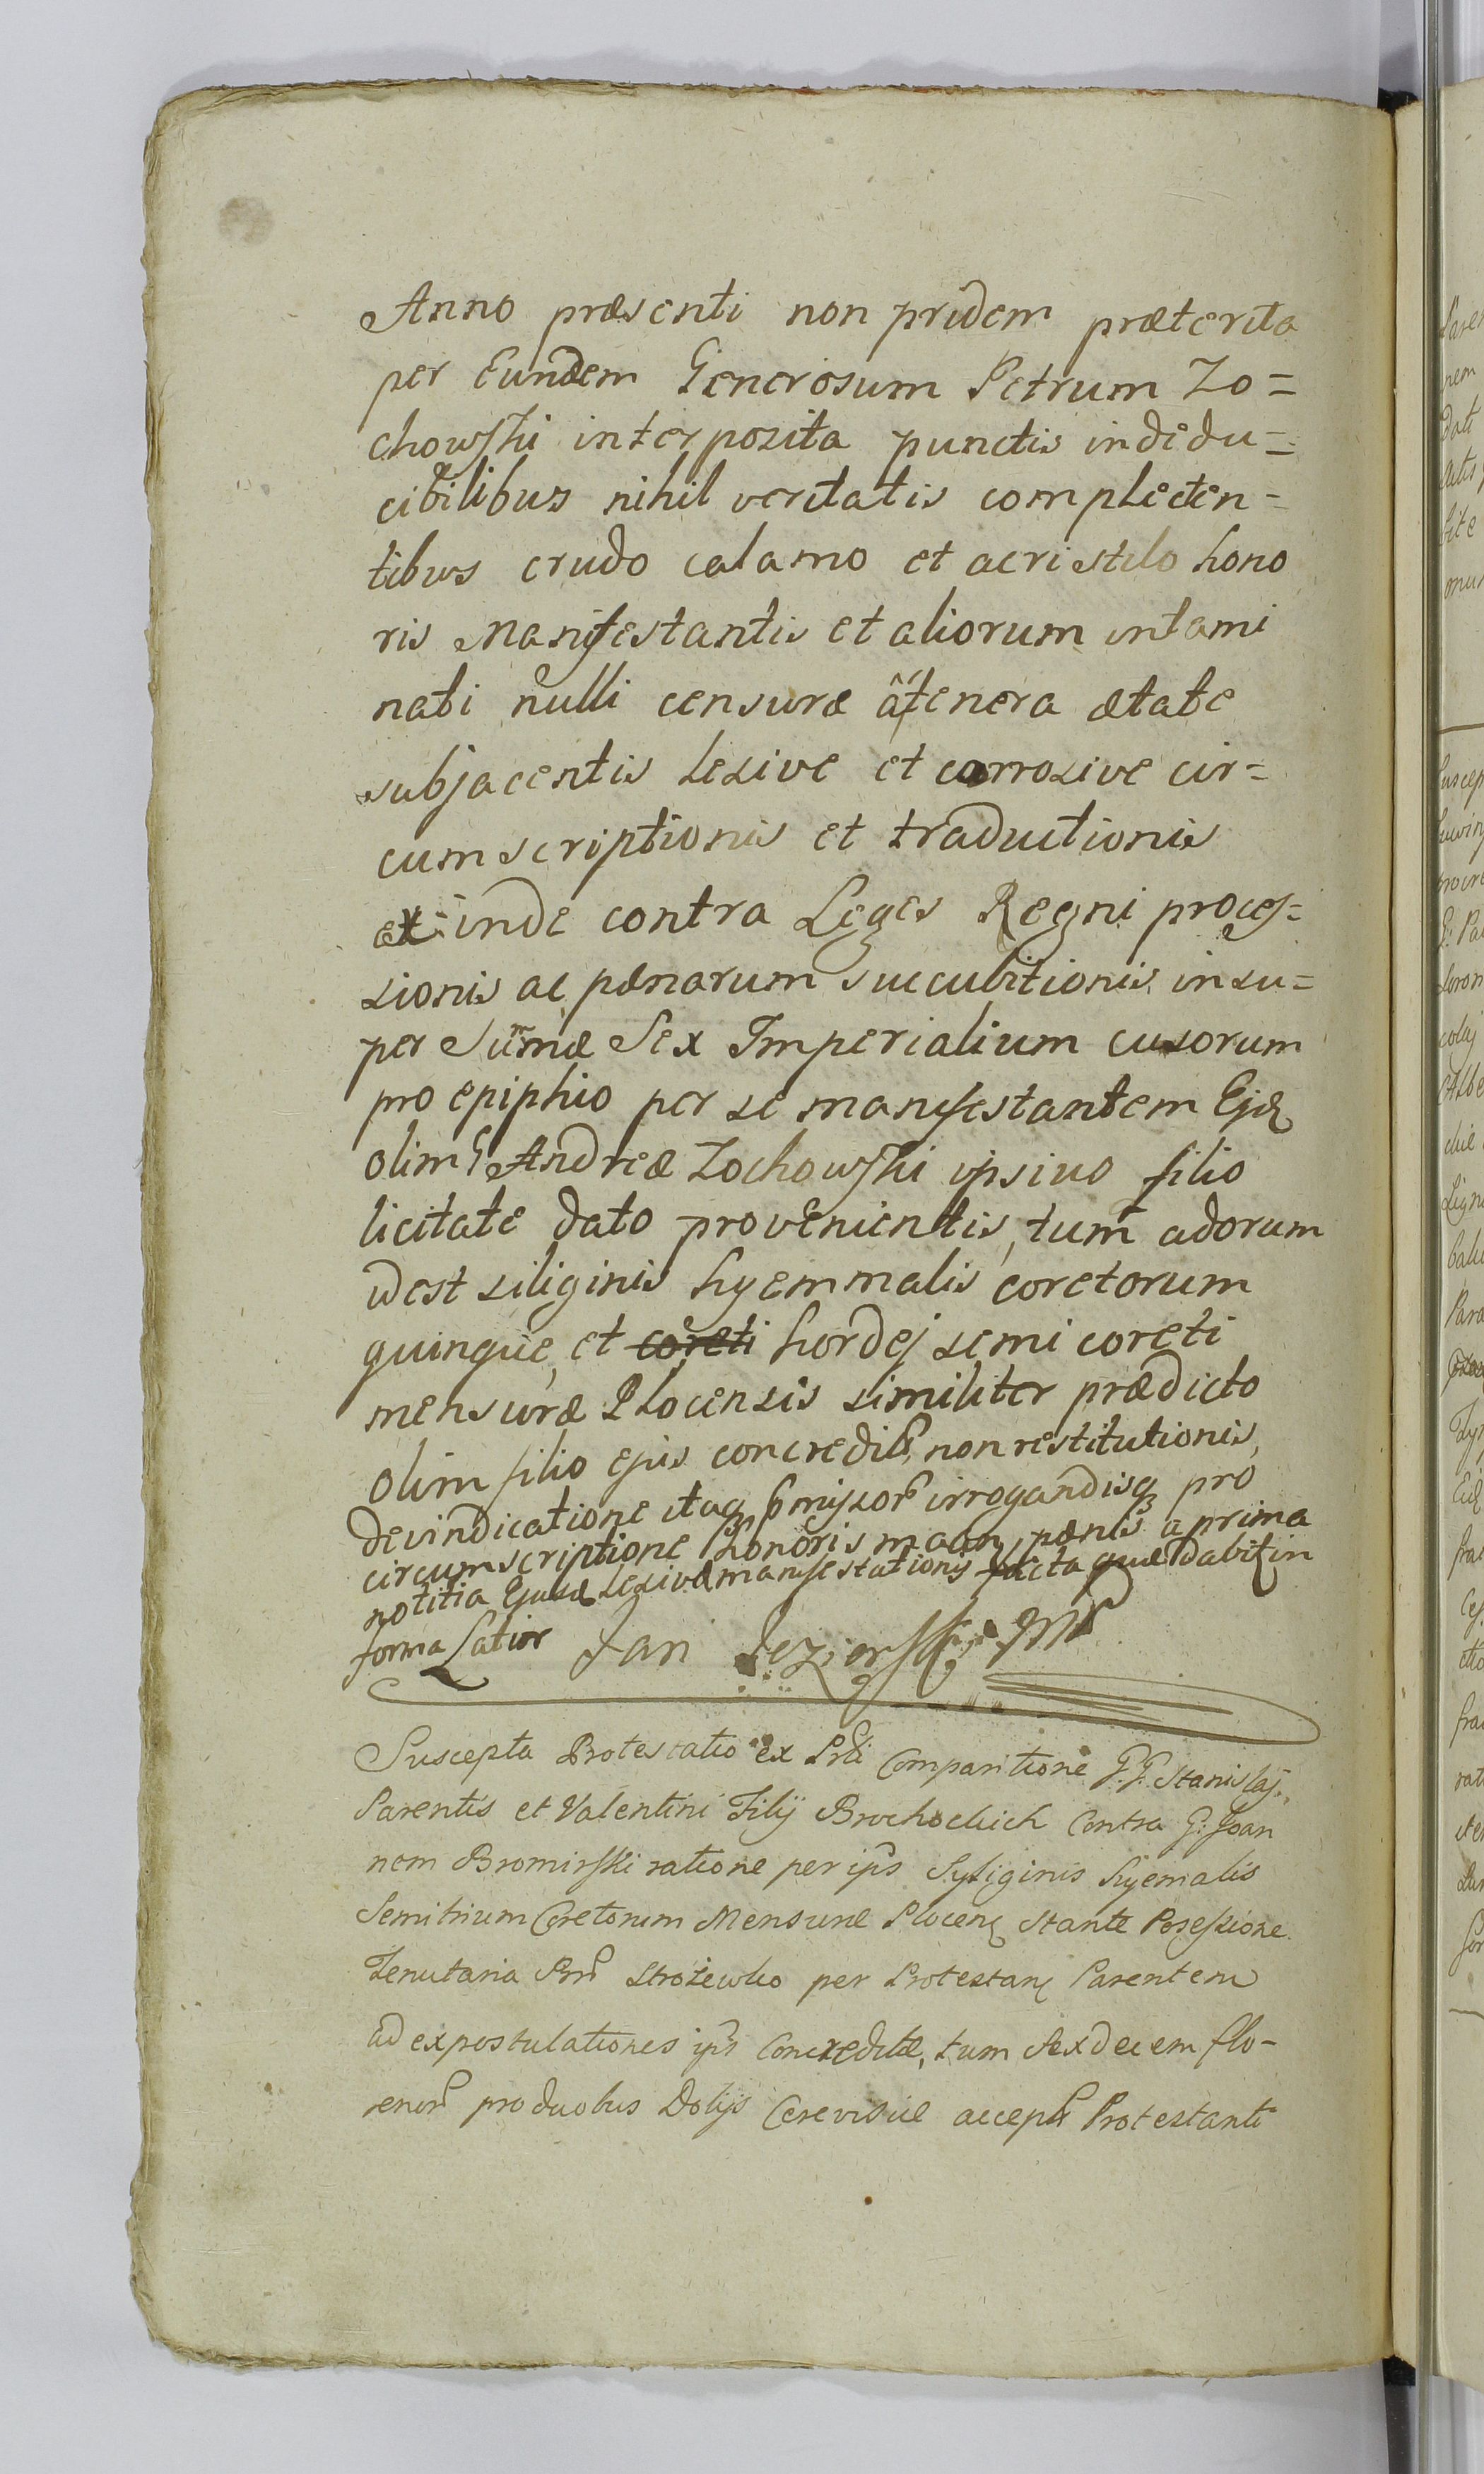 Anno præsenti non pridem præterita
per Eundem Generosum Petrum Zo=
chowski interposita punctis indedu=
cibilibus nihil veritatis complecten=
tibus crudo calamo et acri stilo hono
ris Manifestantis et aliorum intami
nati nulli censuræ â tenera ætate
subjacentis Lesive et corrosive cir=
cumscriptionis et traductionis
ex inde contra Leges Regni proces=
sionis ac pænarum succubitionis insu=
per Sum̃æ Sex Imperialium cusorum
pro epiphio per se manifestantem Ejd
olim G Andreæ Zochowski ipsius filio
licitate dato provenientis, tum adorum
id est siliginis hyemmalis coretorum
quinque, et coreti hordej semi coreti
mensuræ Plocensis similiter prædicto
olim filio ejus concredit, non restitutionis,
devindicatione itaq præmissor irrogandisq pro
circumscriptione honoris pænis a prima
notitia Ejusd Lesivæ manifestationis facta quæ dabit in
forma Latior Jan Jezierski mp
Suscepta Protestatio ex Prti Comparitione G.G. Stanislaj
Parentis et Valentini Filij Brochockich Contra G: Joan
nem Bromirski ratione per ips Syliginis hyemalis
Semitrium Coretorum Mensuræ Plocen Stante Posessione
Tenutaria Strożewko per Protestan Parentem
ad expostulationes ips Concreditæ, tum Sexdecem flo-
renor pro duobus Dolijs Cerevisiæ accept Protestanti